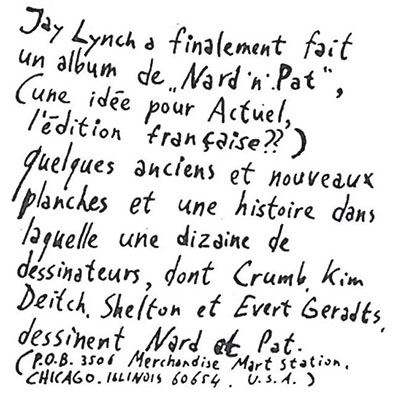 Jay Lynch a finalement fait
un album de „Nard 'n' Pat",
(une idée pour Actuel,
l'édition française??)
quelques anciens et nouveaux
planches et une histoire dans
laquelle une dizaine de
dessinateurs, dont Crumb, Kim
Deitch, Shelton et Evert Geradts,
dessinent Nard et Pat.
(P.O.B. 3506 Merchandise Mart Station.
CHICAGO. ILLINOIS 60654. U.S.A.)